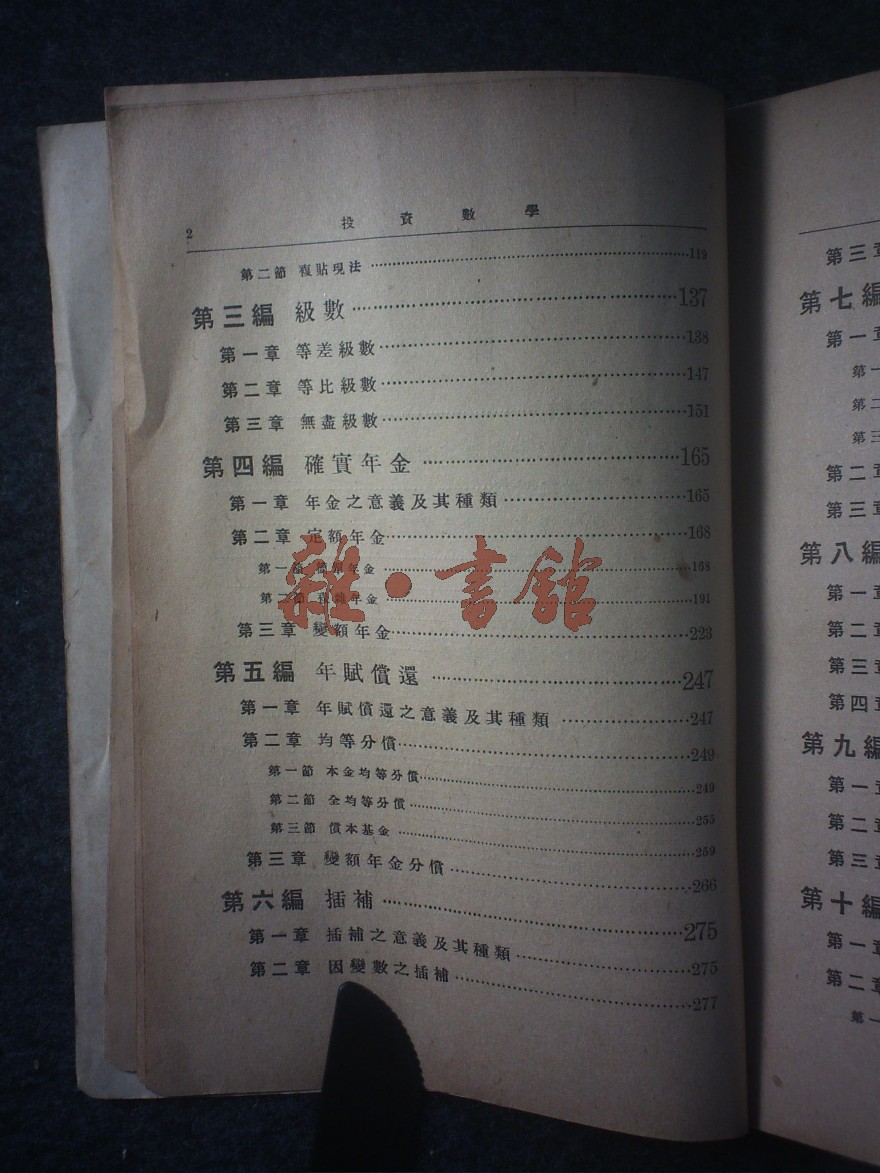 2 投資數學
第二節 複貼現法 119
第三編 級數 137
第一章 等差級數 138
第二章 等比級數 147
第三章 無盡級數 151
第四編 確實年金 165
第一章 年金之意義及其種類 165
第二章 定額年金 168
第一節 年金 168
第二節 年金 191
第三章 變額年金 223
第五編 年賦償還 247
第一章 年賦償還之意義及其種類 247
第二章 均等分償 249
第一節 本金均等分償 249
第二節 全均等分償 255
第三節 償本基金 259
第三章 變額年金分償 266
第六編 插補 275
第一章 插補之意義及其種類 275
第二章 因變數之插補 277
雜·書館
第三章
第七編
第一章
第一
第二
第三
第二章
第三章
第八編
第一章
第二章
第三章
第四章
第九編
第一章
第二章
第三章
第十編
第一章
第二章
第一